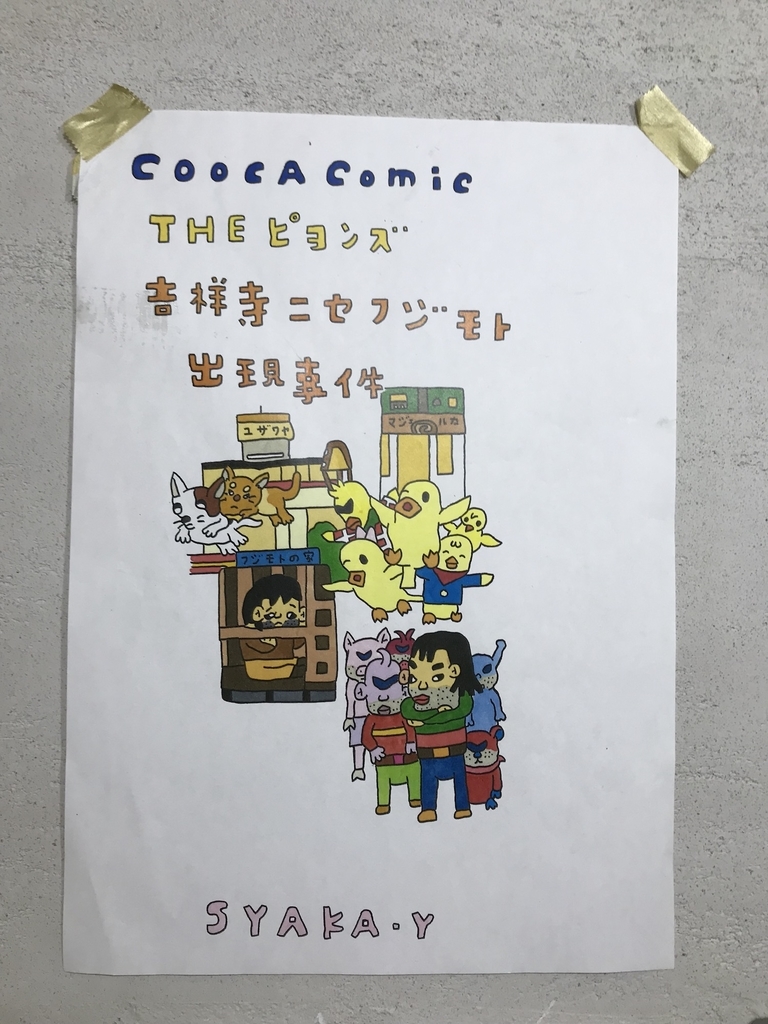 COOCA Comic
THE ピヨンズ
吉祥寺ニセフジモト
出現事件
ユザワヤ
フジモトの家
SYAKA.Y